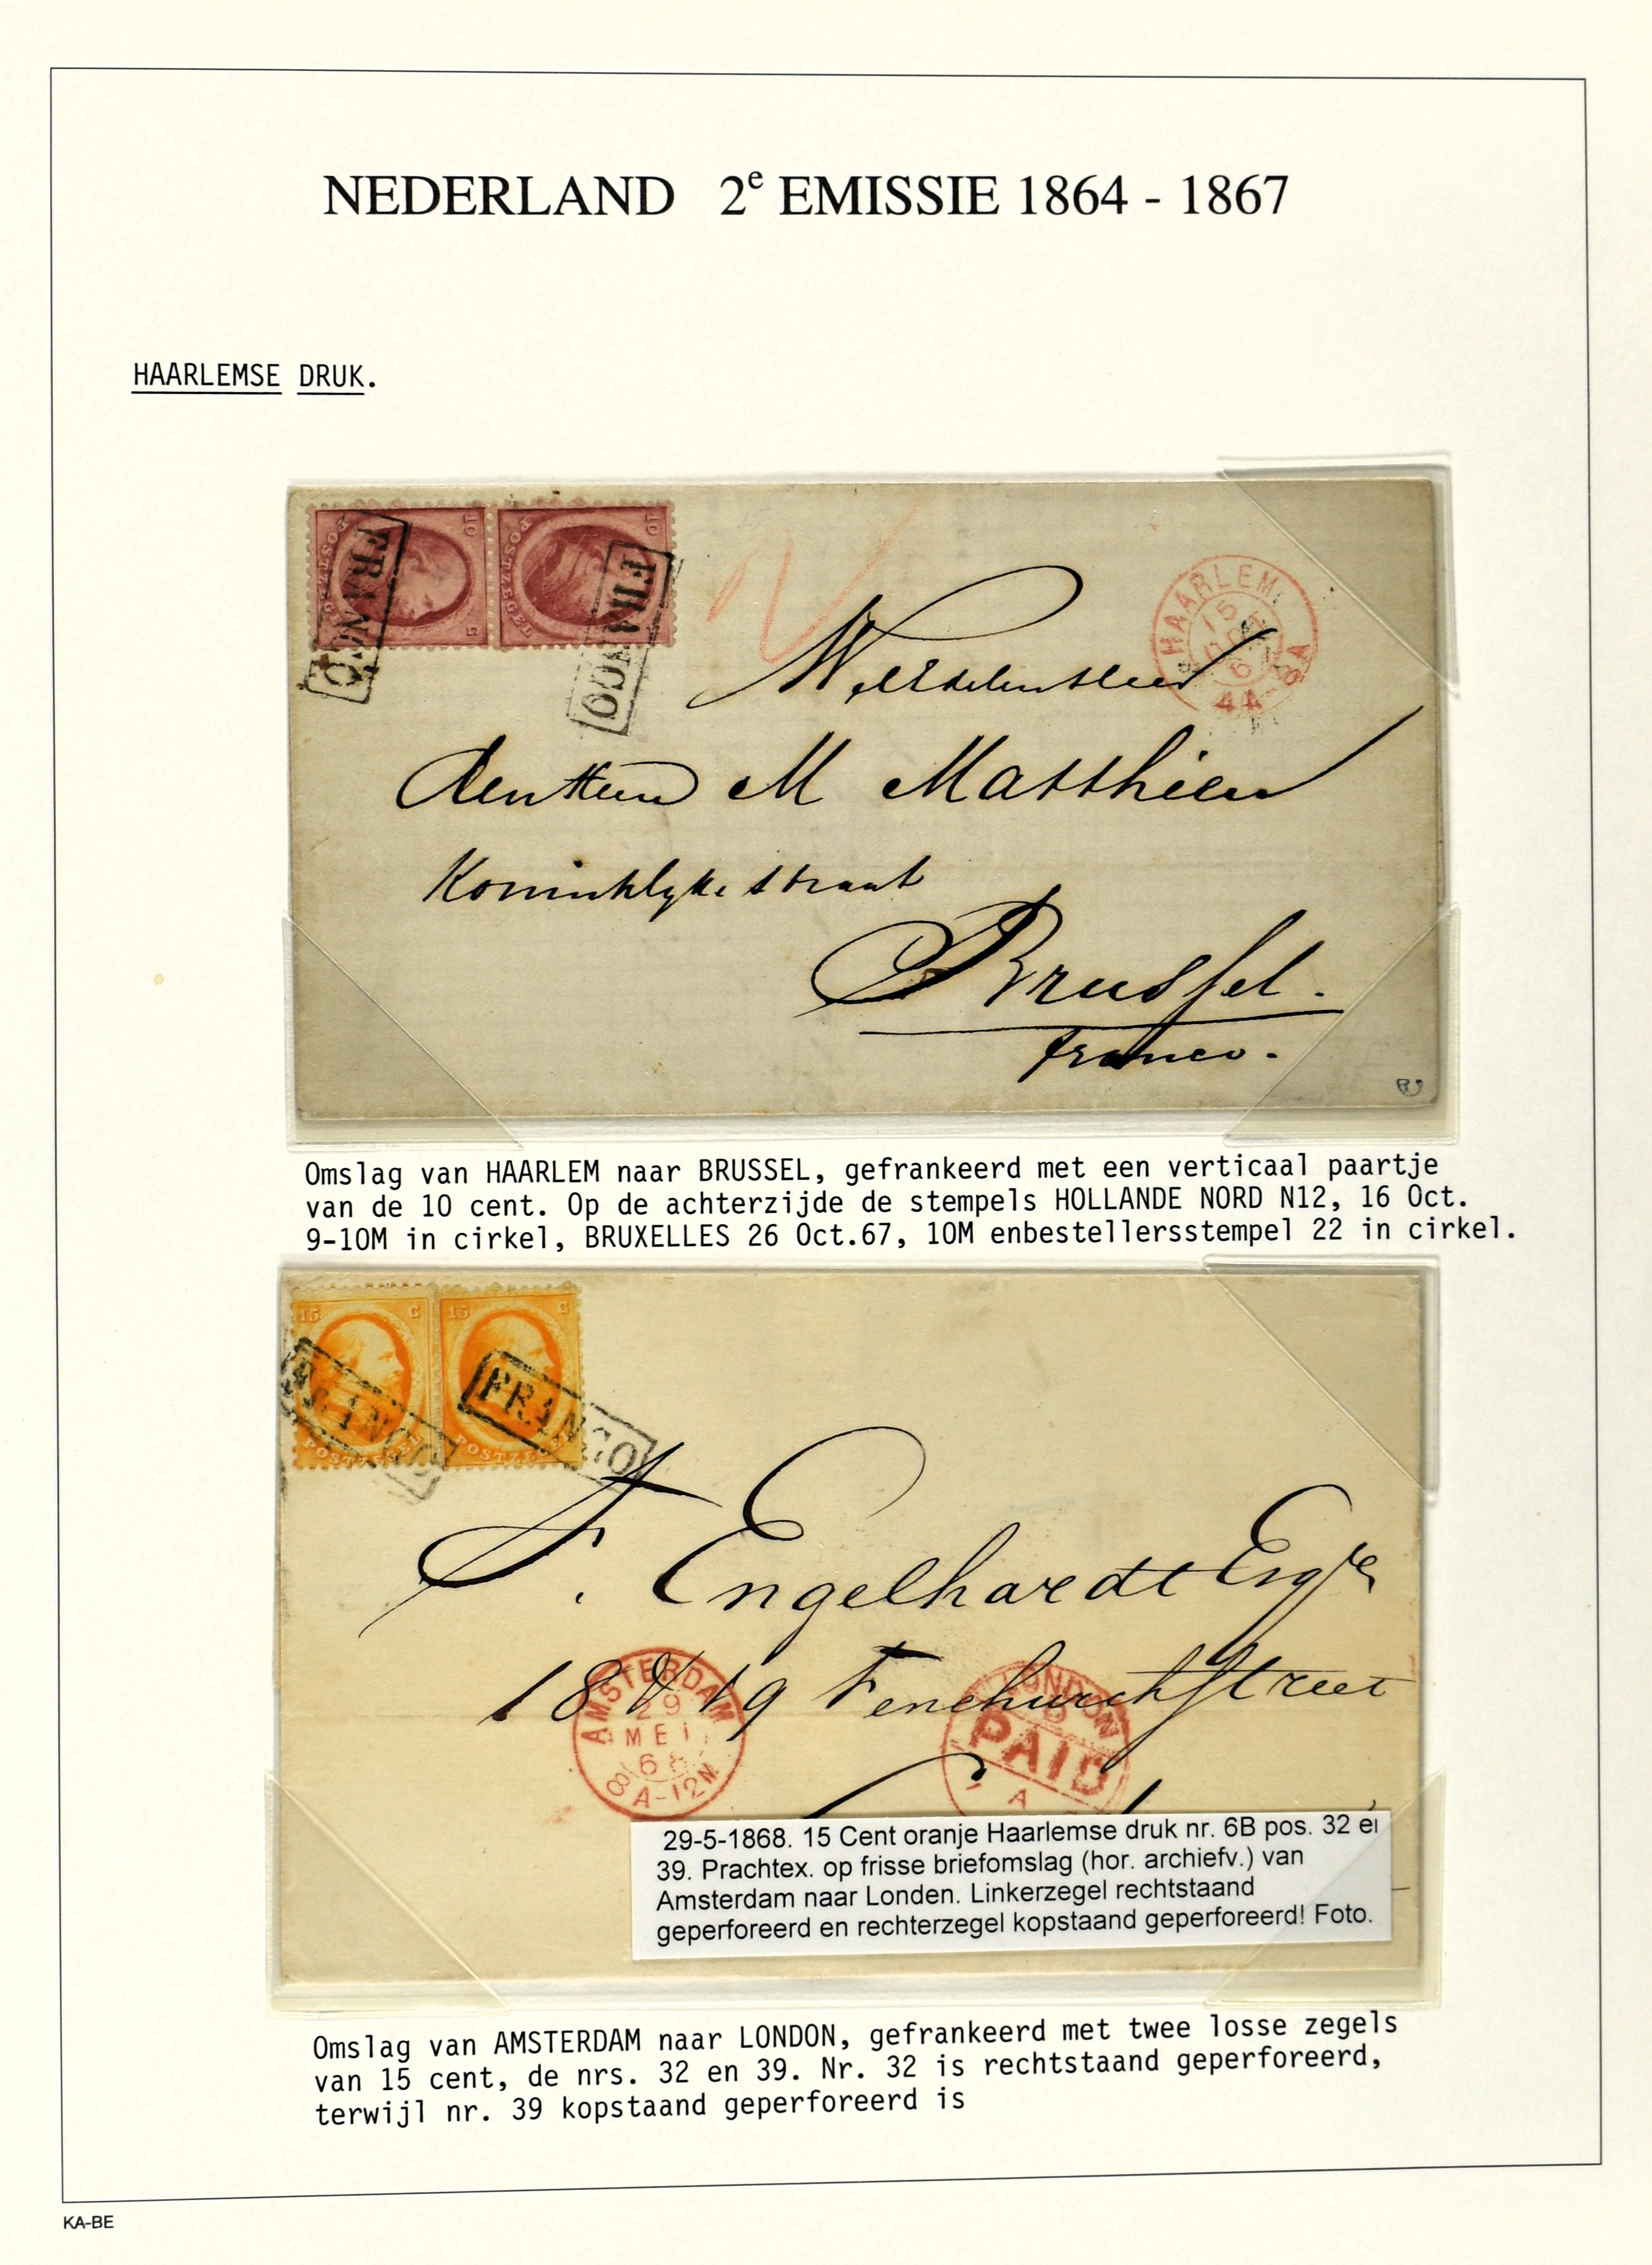 NEDERLAND 2e EMISSIE 1864 - 1867
HAARLEMSE DRUK.
10 C
POSTZEGEL
10
POSTZEGEL
FRANCO
FRANCO
HAARLEM
15
6
4A-8A
WelEdelenHeer
den Heer M Matthieu
Koninklyke straat
Brussel.
franco.
Omslag van HAARLEM naar BRUSSEL, gefrankeerd met een verticaal paartje
van de 10 cent. Op de achterzijde de stempels HOLLANDE NORD N12, 16 Oct.
9-10M in cirkel, BRUXELLES 26 Oct.67, 10M enbestellersstempel 22 in cirkel.
15 C
15 C
POSTZEGEL
POSTZEGEL
FRANCO
FRANCO
F. Engelhardt Esqre
18 & 19 Fenchurchstreet
AMSTERDAM
29
MEI
68
8A-12M
LONDON
PAID
A
29-5-1868. 15 Cent oranje Haarlemse druk nr. 6B pos. 32 en
39. Prachtex. op frisse briefomslag (hor. archiefv.) van
Amsterdam naar Londen. Linkerzegel rechtstaand
geperforeerd en rechterzegel kopstaand geperforeerd! Foto.
Omslag van AMSTERDAM naar LONDON, gefrankeerd met twee losse zegels
van 15 cent, de nrs. 32 en 39. Nr. 32 is rechtstaand geperforeerd,
terwijl nr. 39 kopstaand geperforeerd is
KA-BE